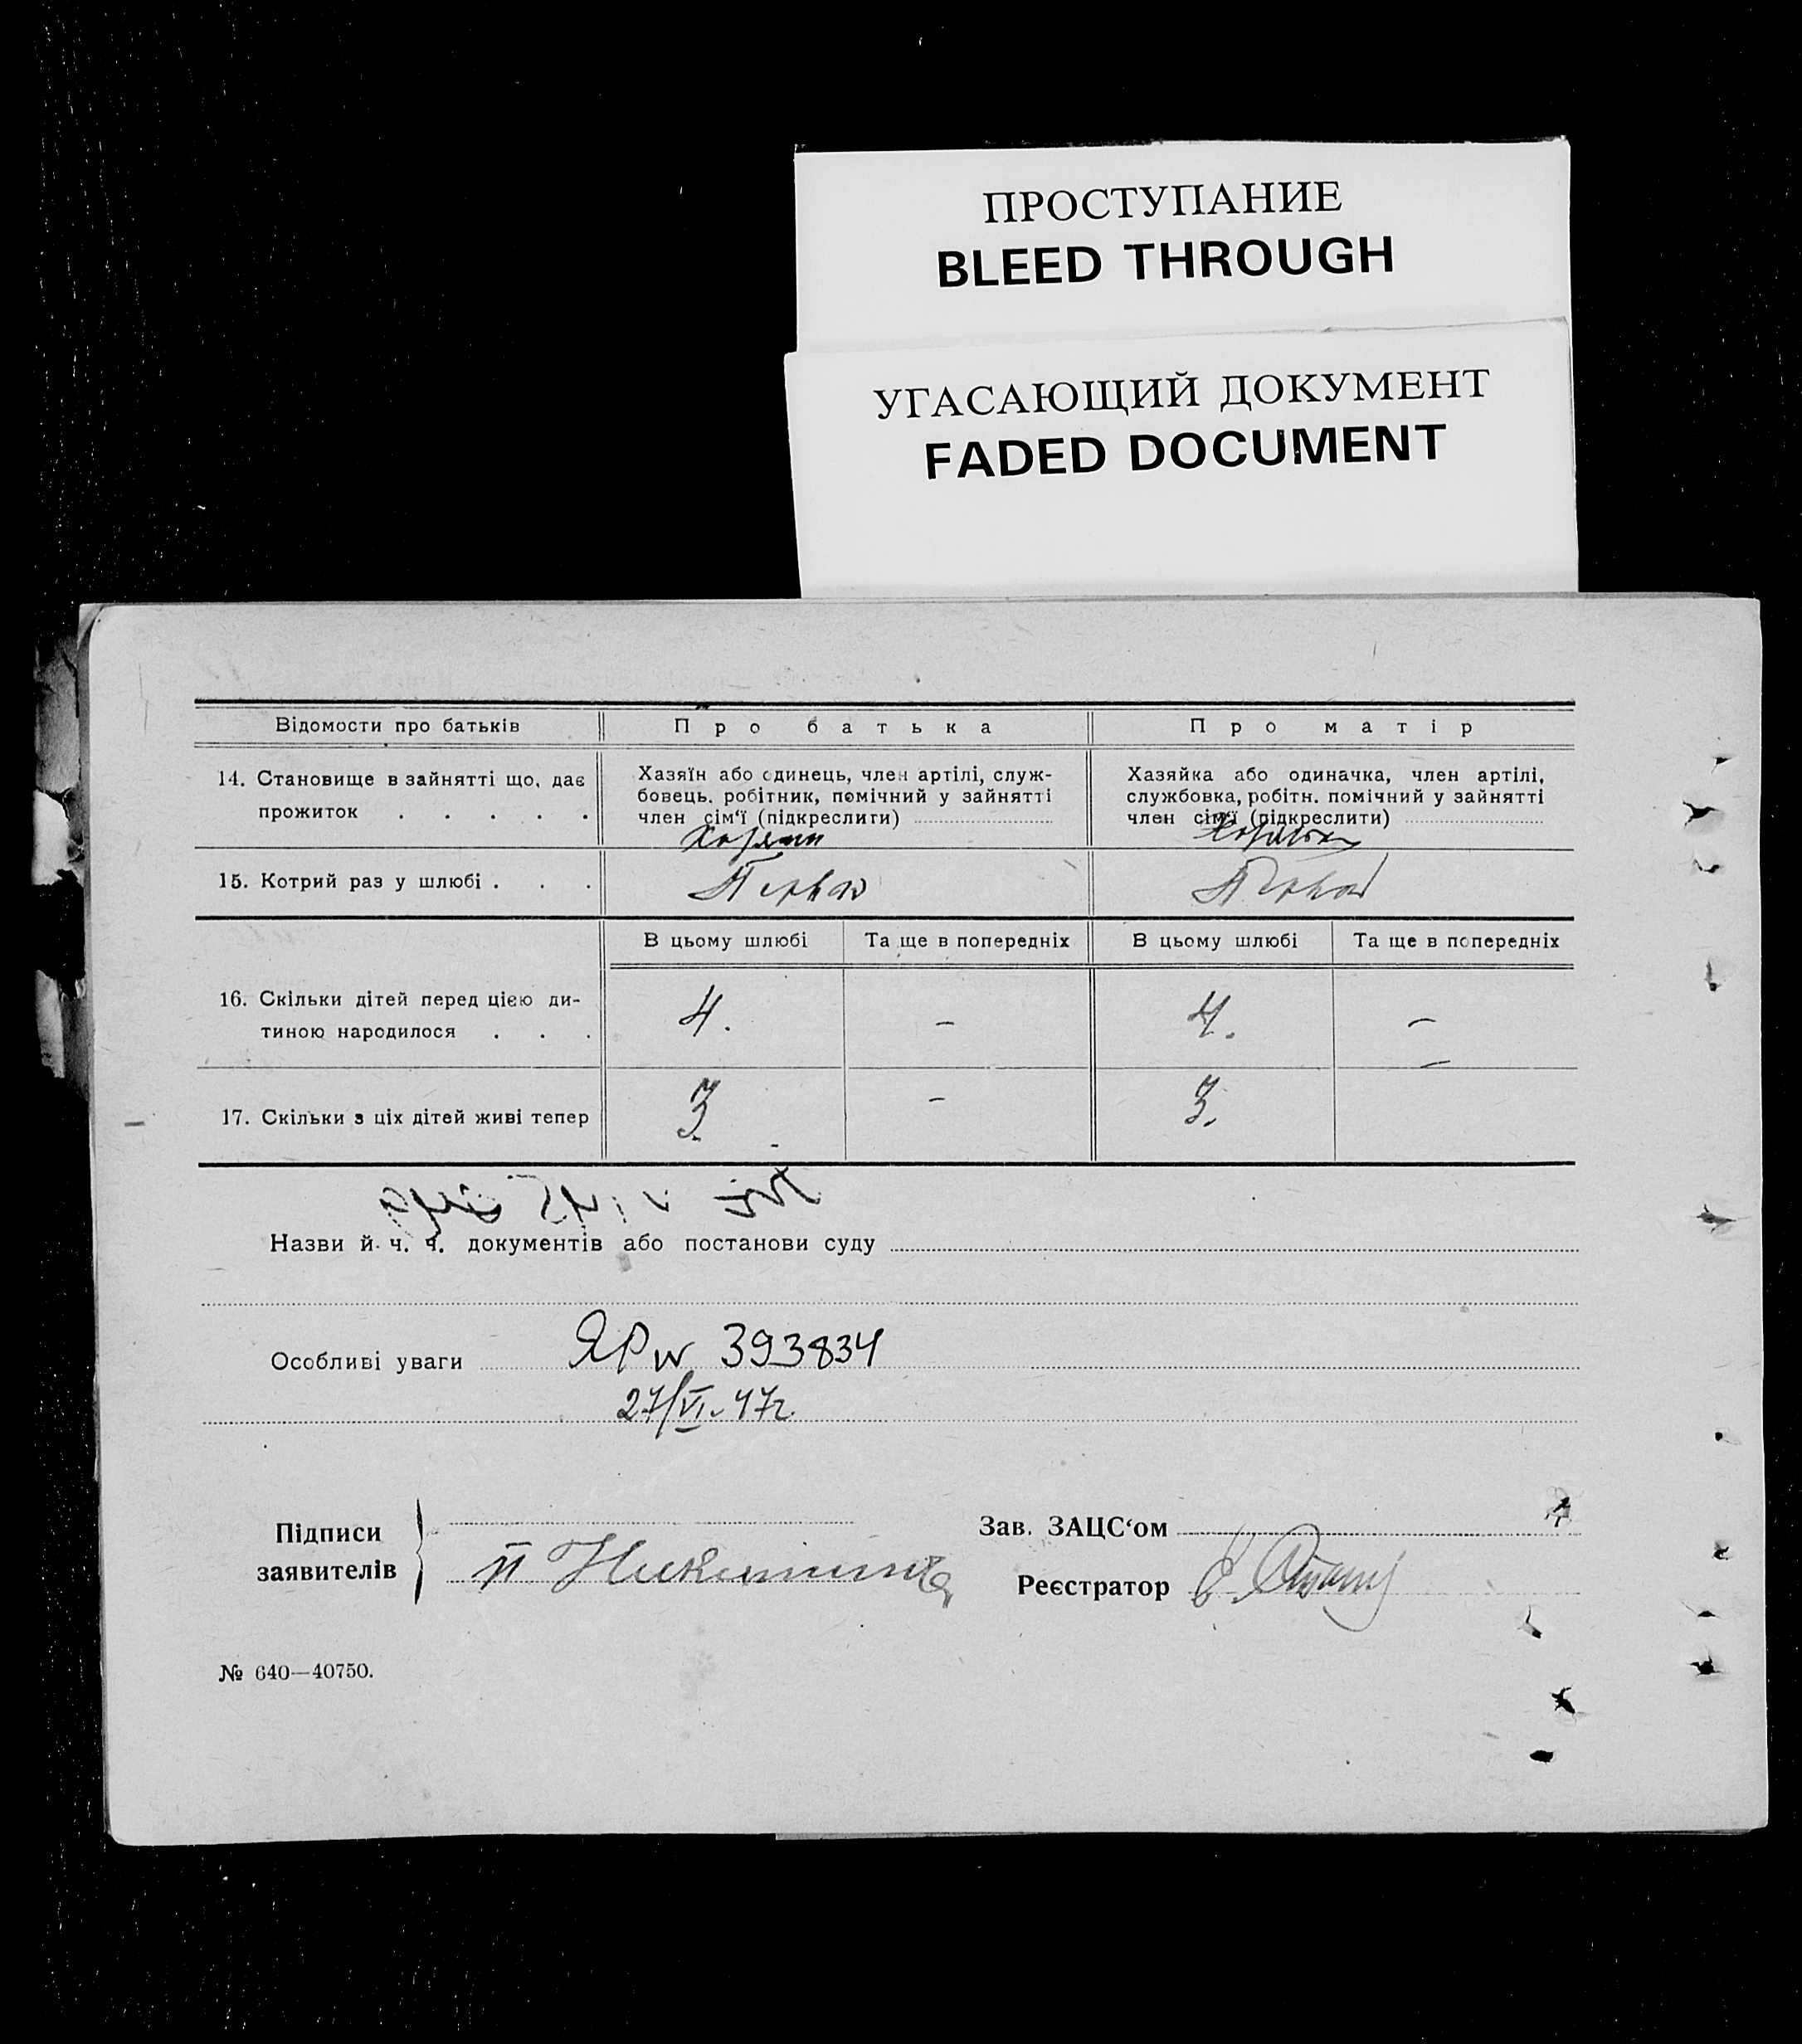 ПРОСТУПАНИЕ
BLEED THROUGH
УГАСАЮЩИЙ ДОКУМЕНТ
FADED DOCUMENT
Відомости про батьків Про батька Про матір
14. Становище в зайнятті що, дає прожиток . . . . .
Хазяїн або одинець, член артілі, служ-
бовець. робітник, помічний у зайнятті
член сім‘ї (підкреслити)
Хазяин
Хазяйка або одиначка, член артілі,
службовка, робітн. помічний у зайнятті
член сім‘ї (підкреслити)
15. Котрий раз у шлюбі . . .
В цьому шлюбі Та ще в попередніх В цьому шлюбі Та ще в попередніх
16. Скільки дітей перед цією ди-
тиною народилося . . .
4. – 4. –
17. Скільки з ціх дітей живі тепер 3. – 3. –
Назви й. ч. ч. документів або постанови суду
Особливі уваги ЯР № 393834
27/VI-47г.
Підписи
заявителів
Зав. ЗАЦС‘ом
Реєстратор
№ 640—40750.